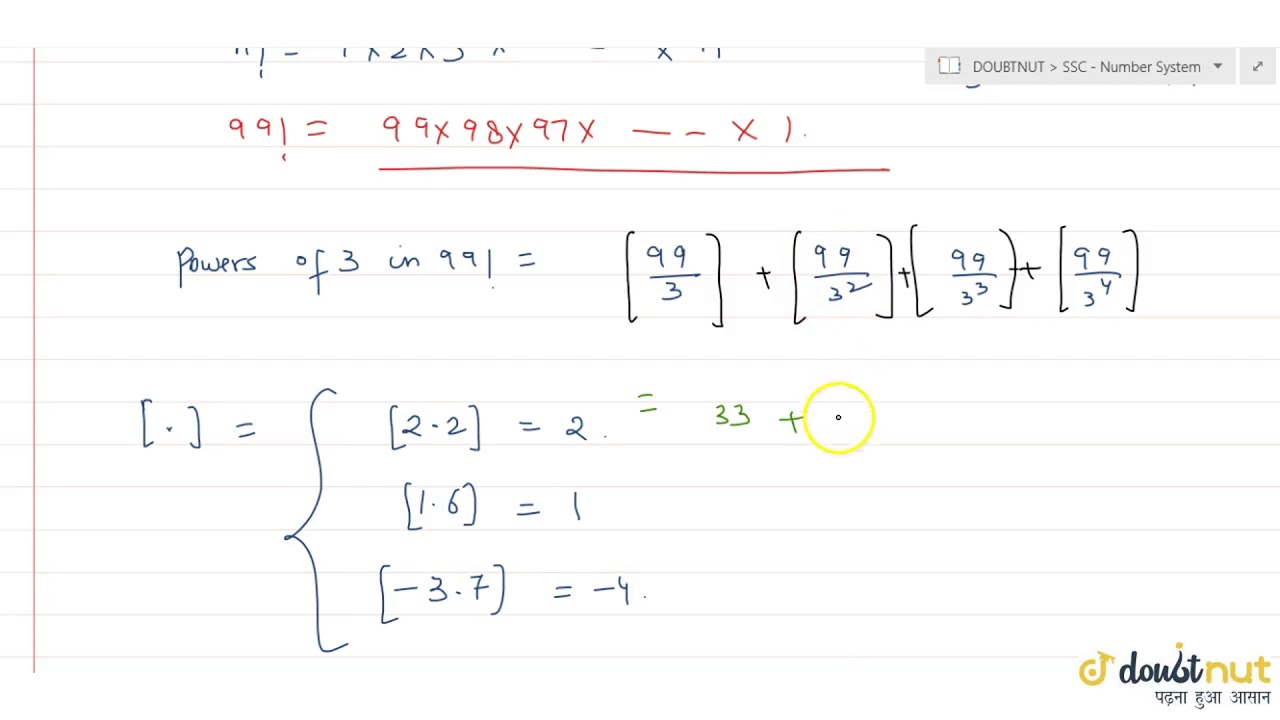 DOUBTNUT > SSC - Number System
99! = 99 x 98 x 97 x --- x 1.
Powers of 3 in 99! = [99/3] + [99/3²] + [99/3³] + [99/3⁴]
[.] = { [2.2] = 2. = 33 +
[1.6] = 1
[-3.7] = -4.
doubtnut
पढ़ना हुआ आसान